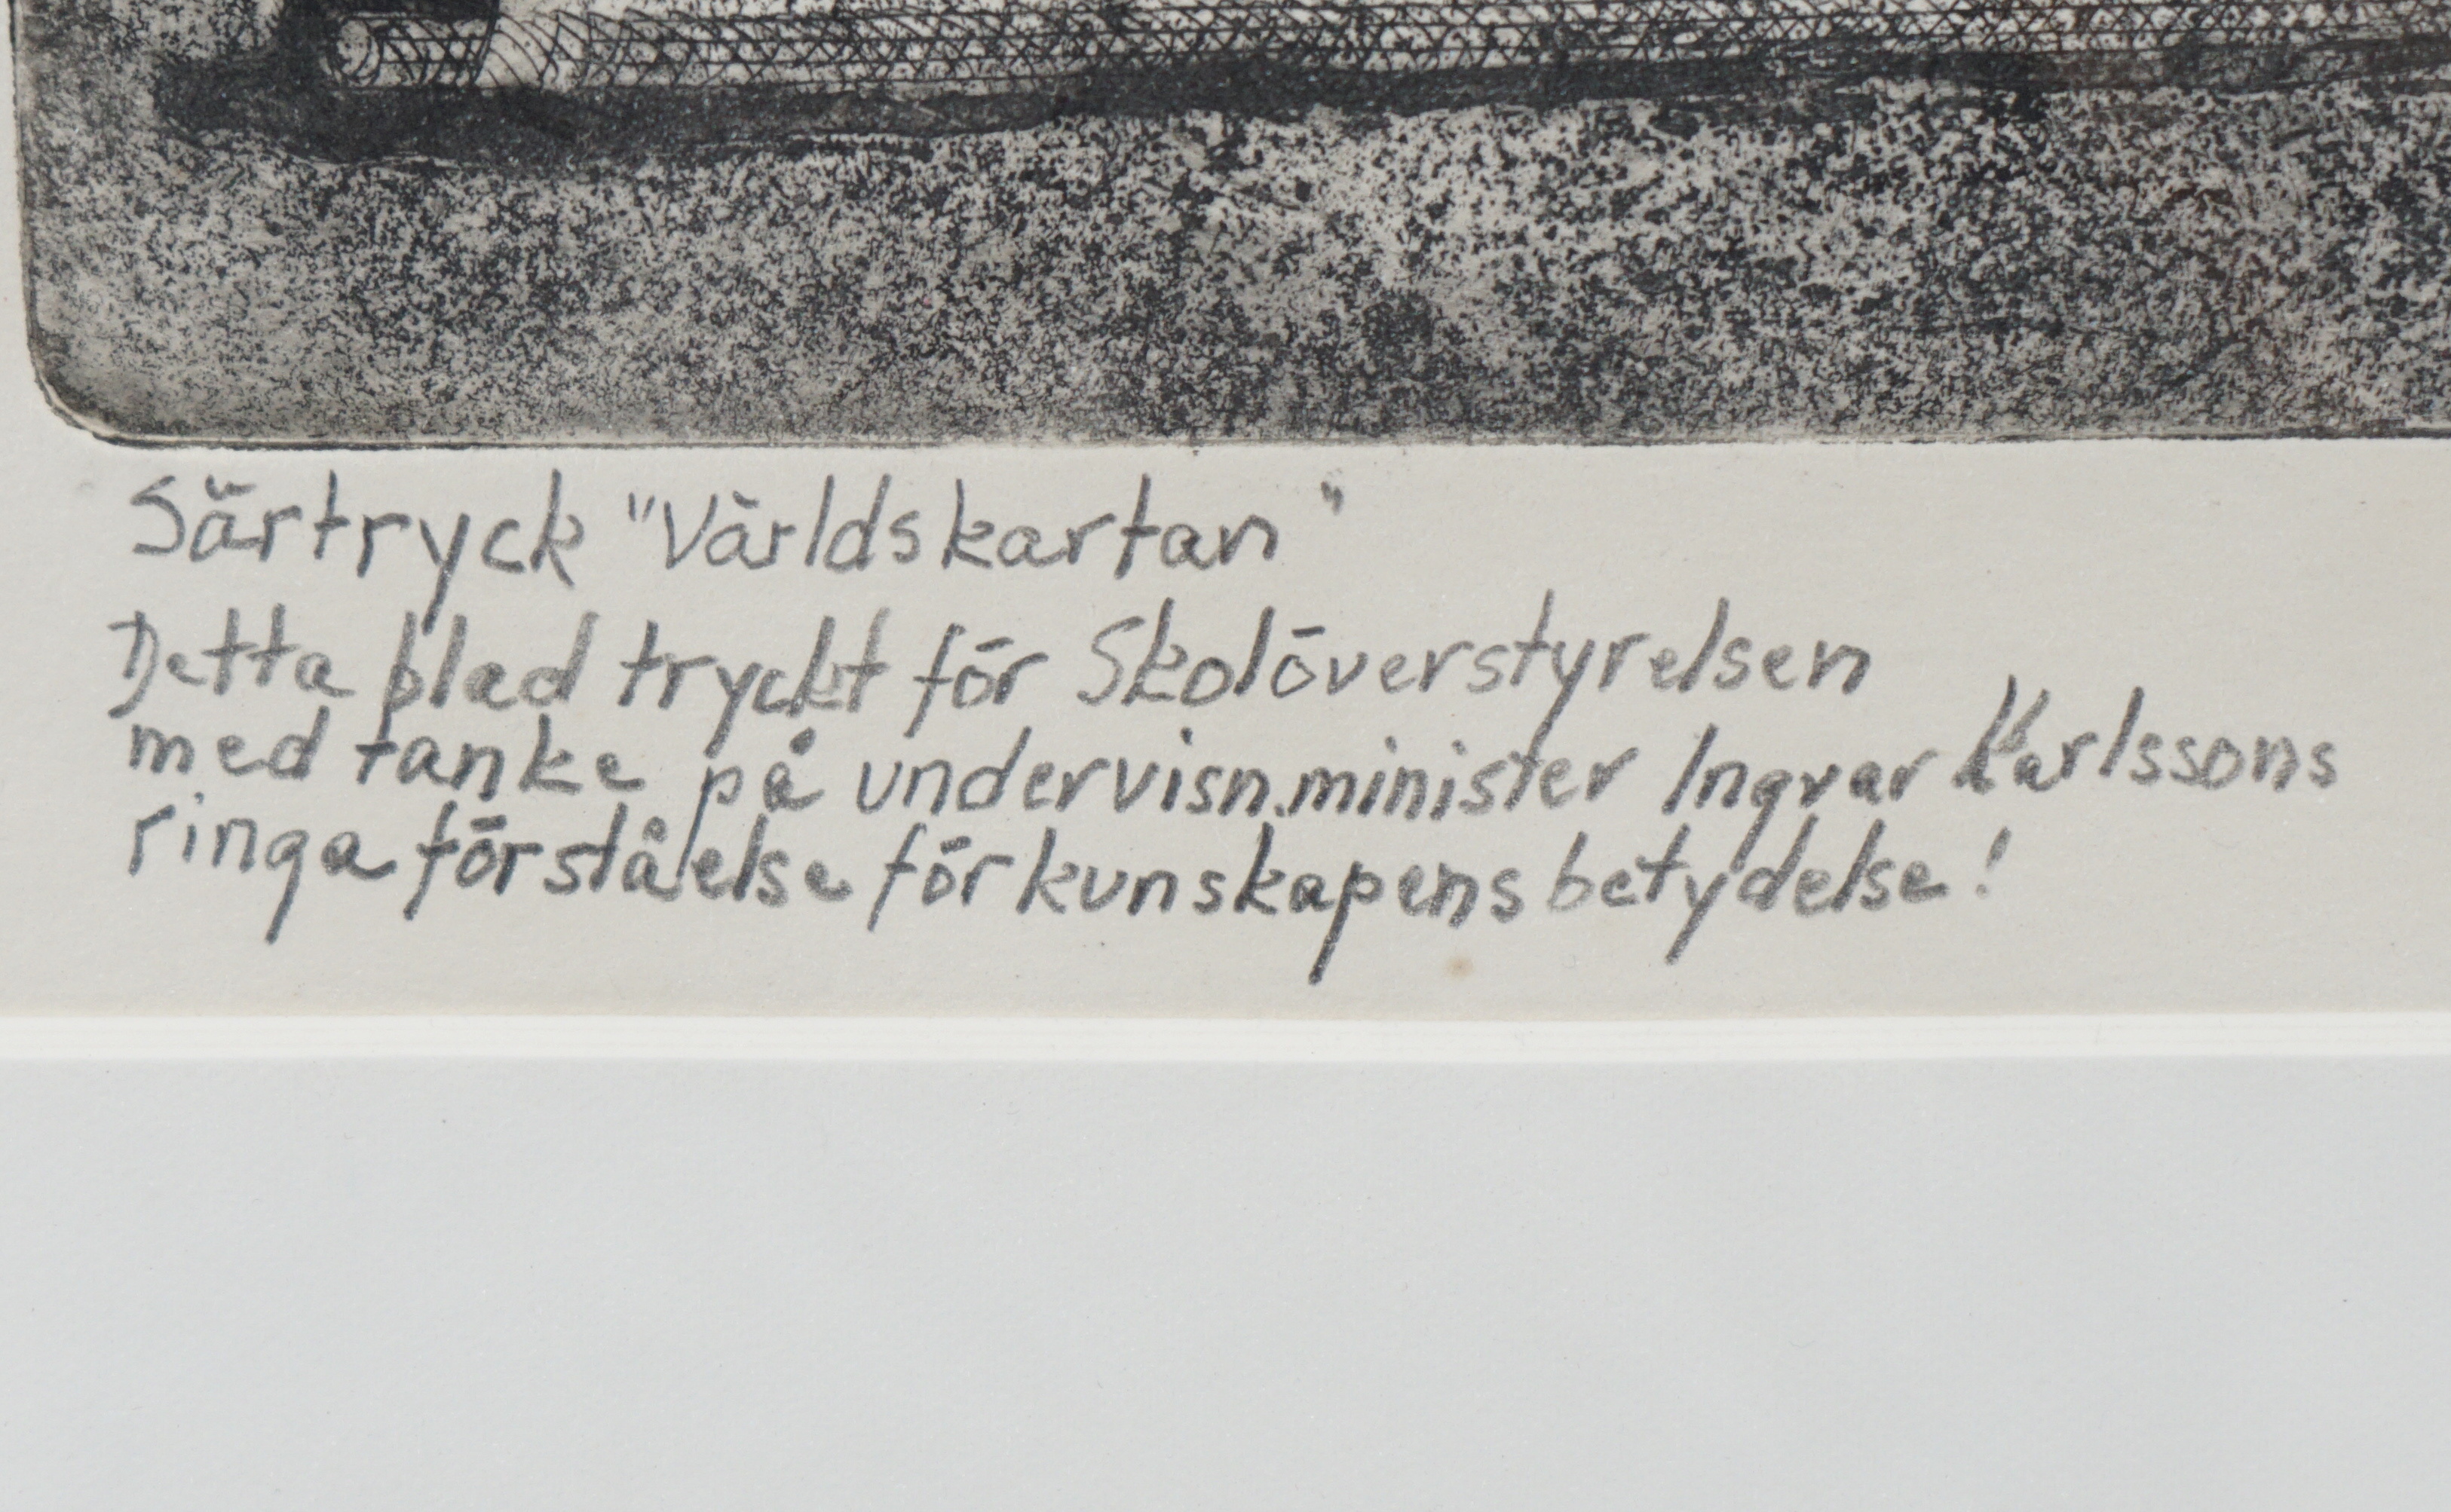 Särtryck "Världskartan"
Detta blad tryckt för Skolöverstyrelsen
med tanke på undervisn.minister Ingvar Karlssons
ringa förståelse för kunskapens betydelse!